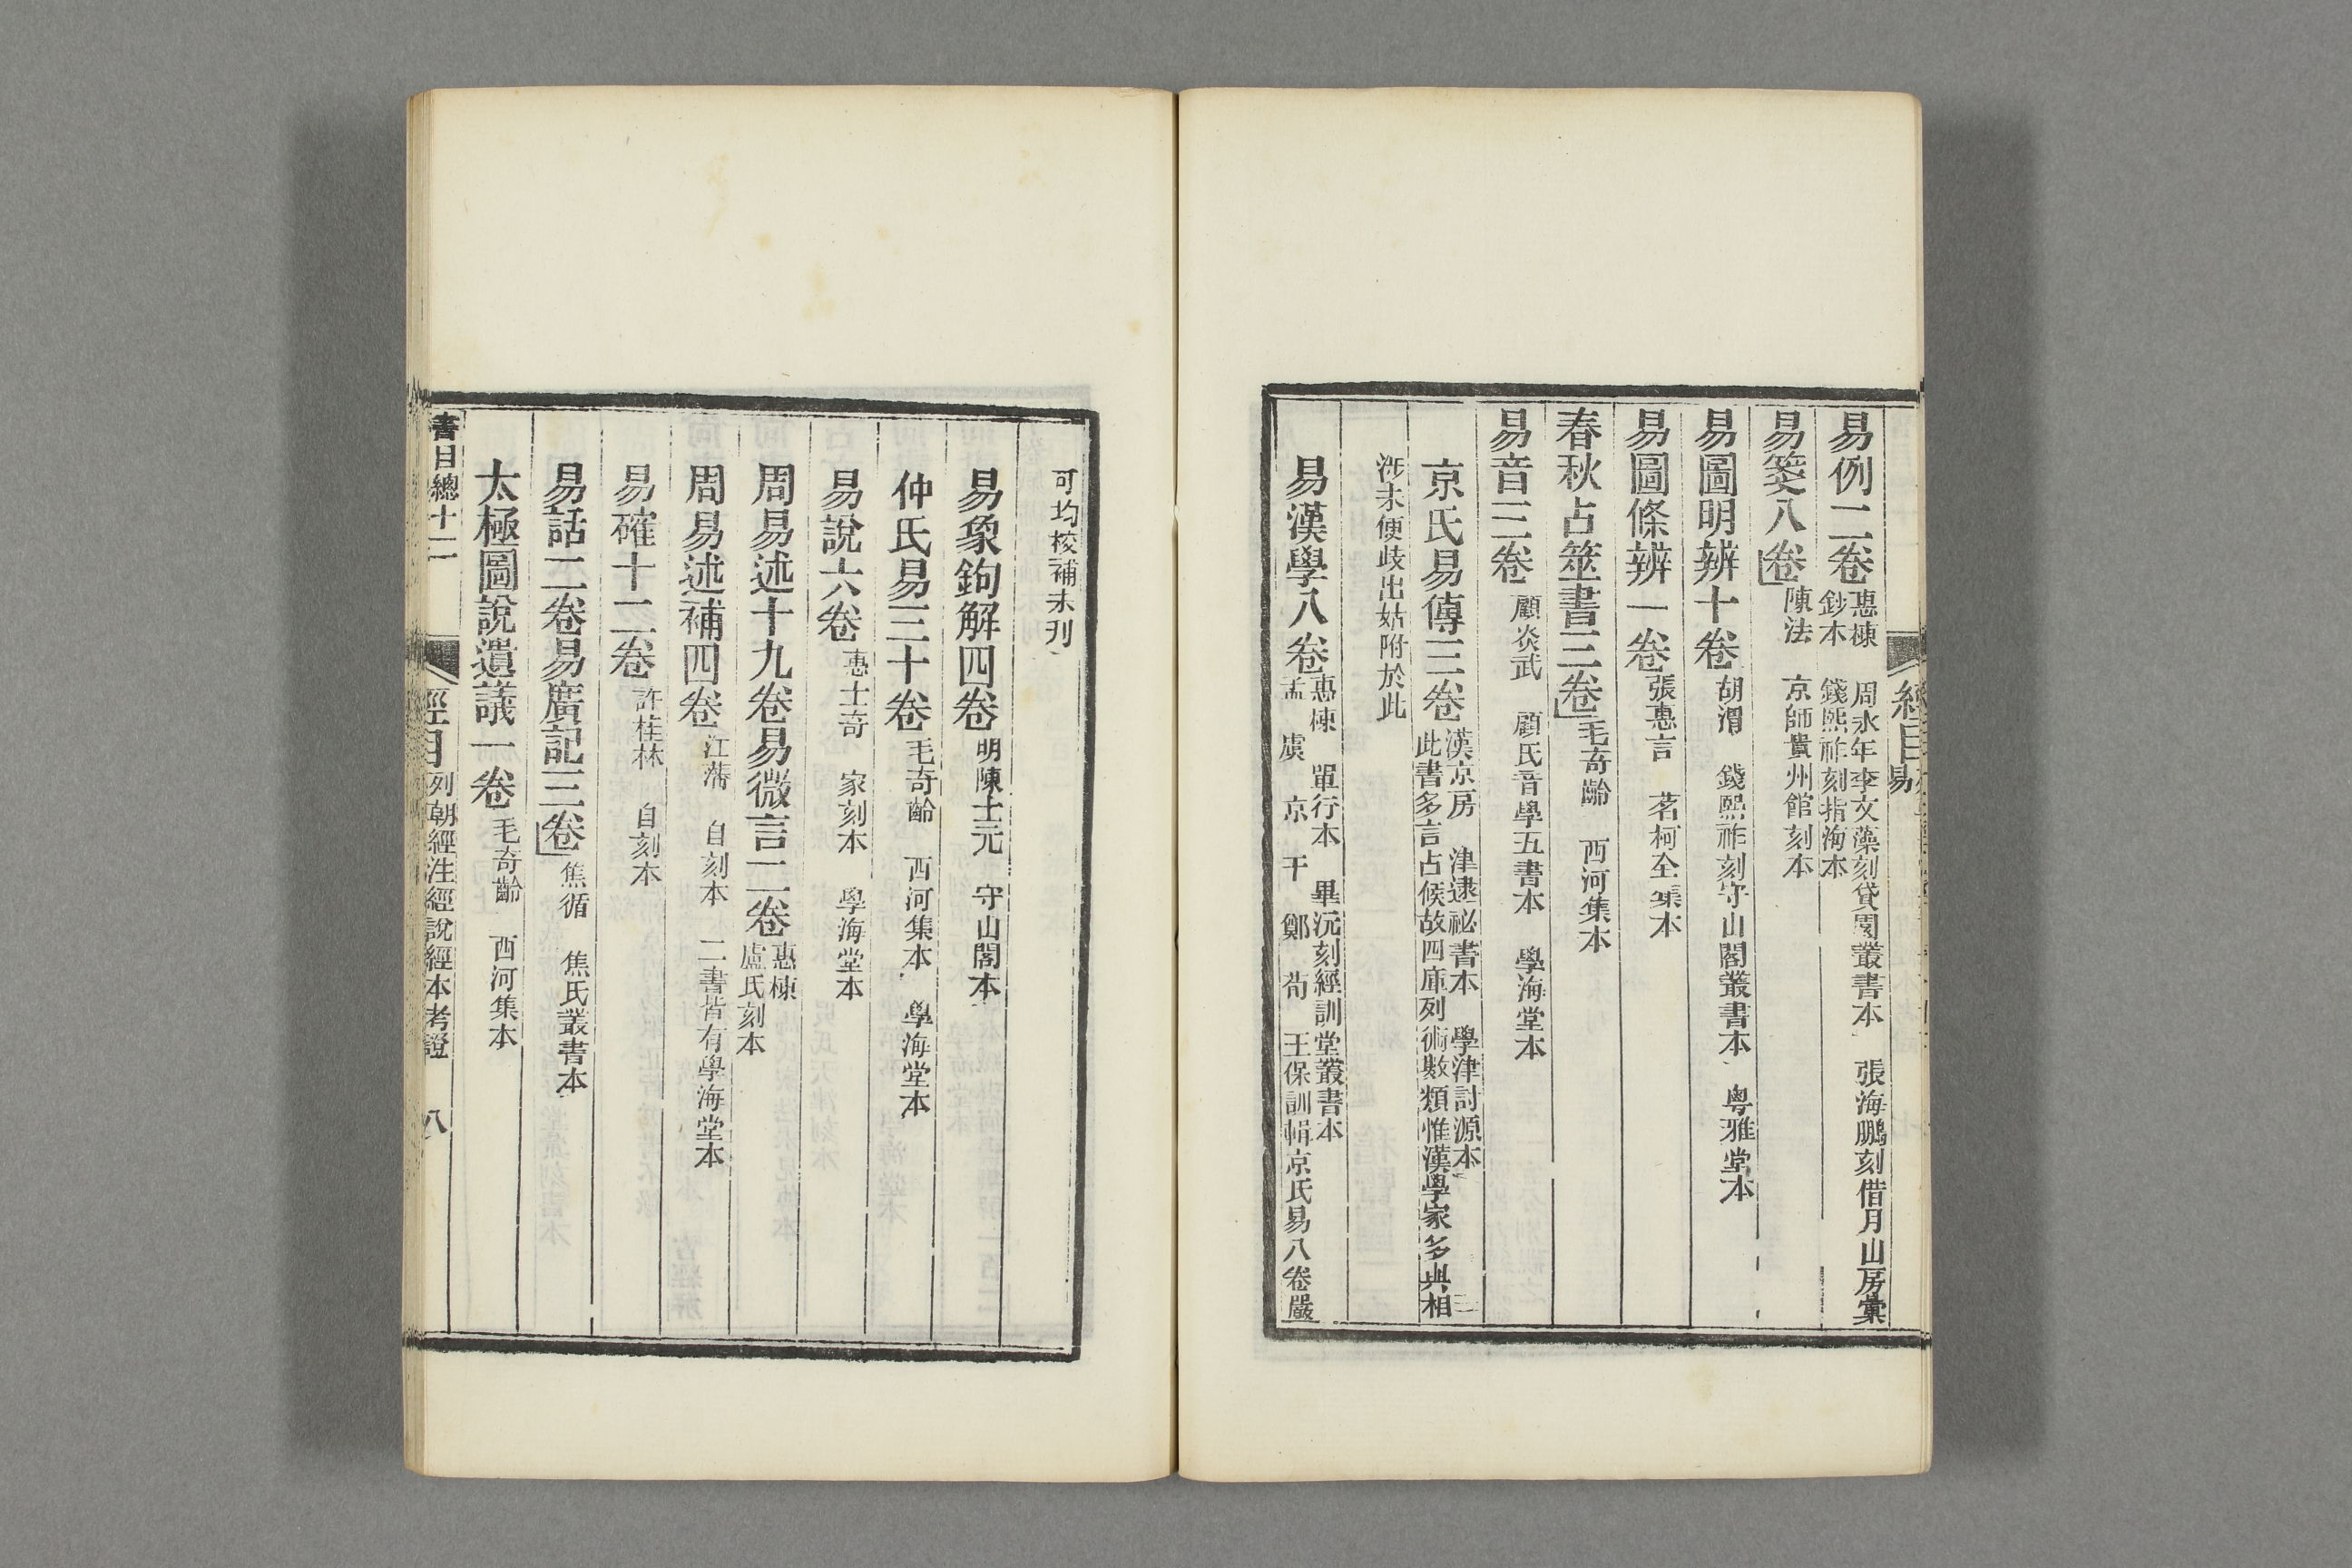 經目易
易例二卷惠棟 周永年李文藻刻貸園叢書本 張海鵬刻借月山房彙
鈔本 錢熙祚刻指海本
易箋八卷陳法 京師貴州館刻本
易圖明辨十卷胡渭 錢熙祚刻守山閣叢書本 粤雅堂本
易圖條辨一卷張惠言 茗柯全集本
春秋占筮書三卷毛奇齡 西河集本
易音三卷顧炎武 顧氏音學五書本 學海堂本
京氏易傳三卷漢京房 津逮祕書本 學津討源本
此書多言占候故四庫列術數類惟漢學家多與相
涉未便歧出姑附於此
易漢學八卷惠棟 單行本 畢沅刻經訓堂叢書本
孟 虞 京 干 鄭 荀 王保訓輯京氏易八卷嚴
可均校補未刊
易象鉤解四卷明陳士元 守山閣本
仲氏易三十卷毛奇齡 西河集本 學海堂本
易說六卷惠士奇 家刻本 學海堂本
周易述十九卷易微言二卷惠棟
盧氏刻本
周易述補四卷江藩 自刻本 二書皆有學海堂本
易確十二卷許桂林 自刻本
易話二卷易廣記三卷焦循 焦氏叢書本
太極圖說遺議一卷毛奇齡 西河集本
書目總十二 經目列朝經注經說經本考證 八